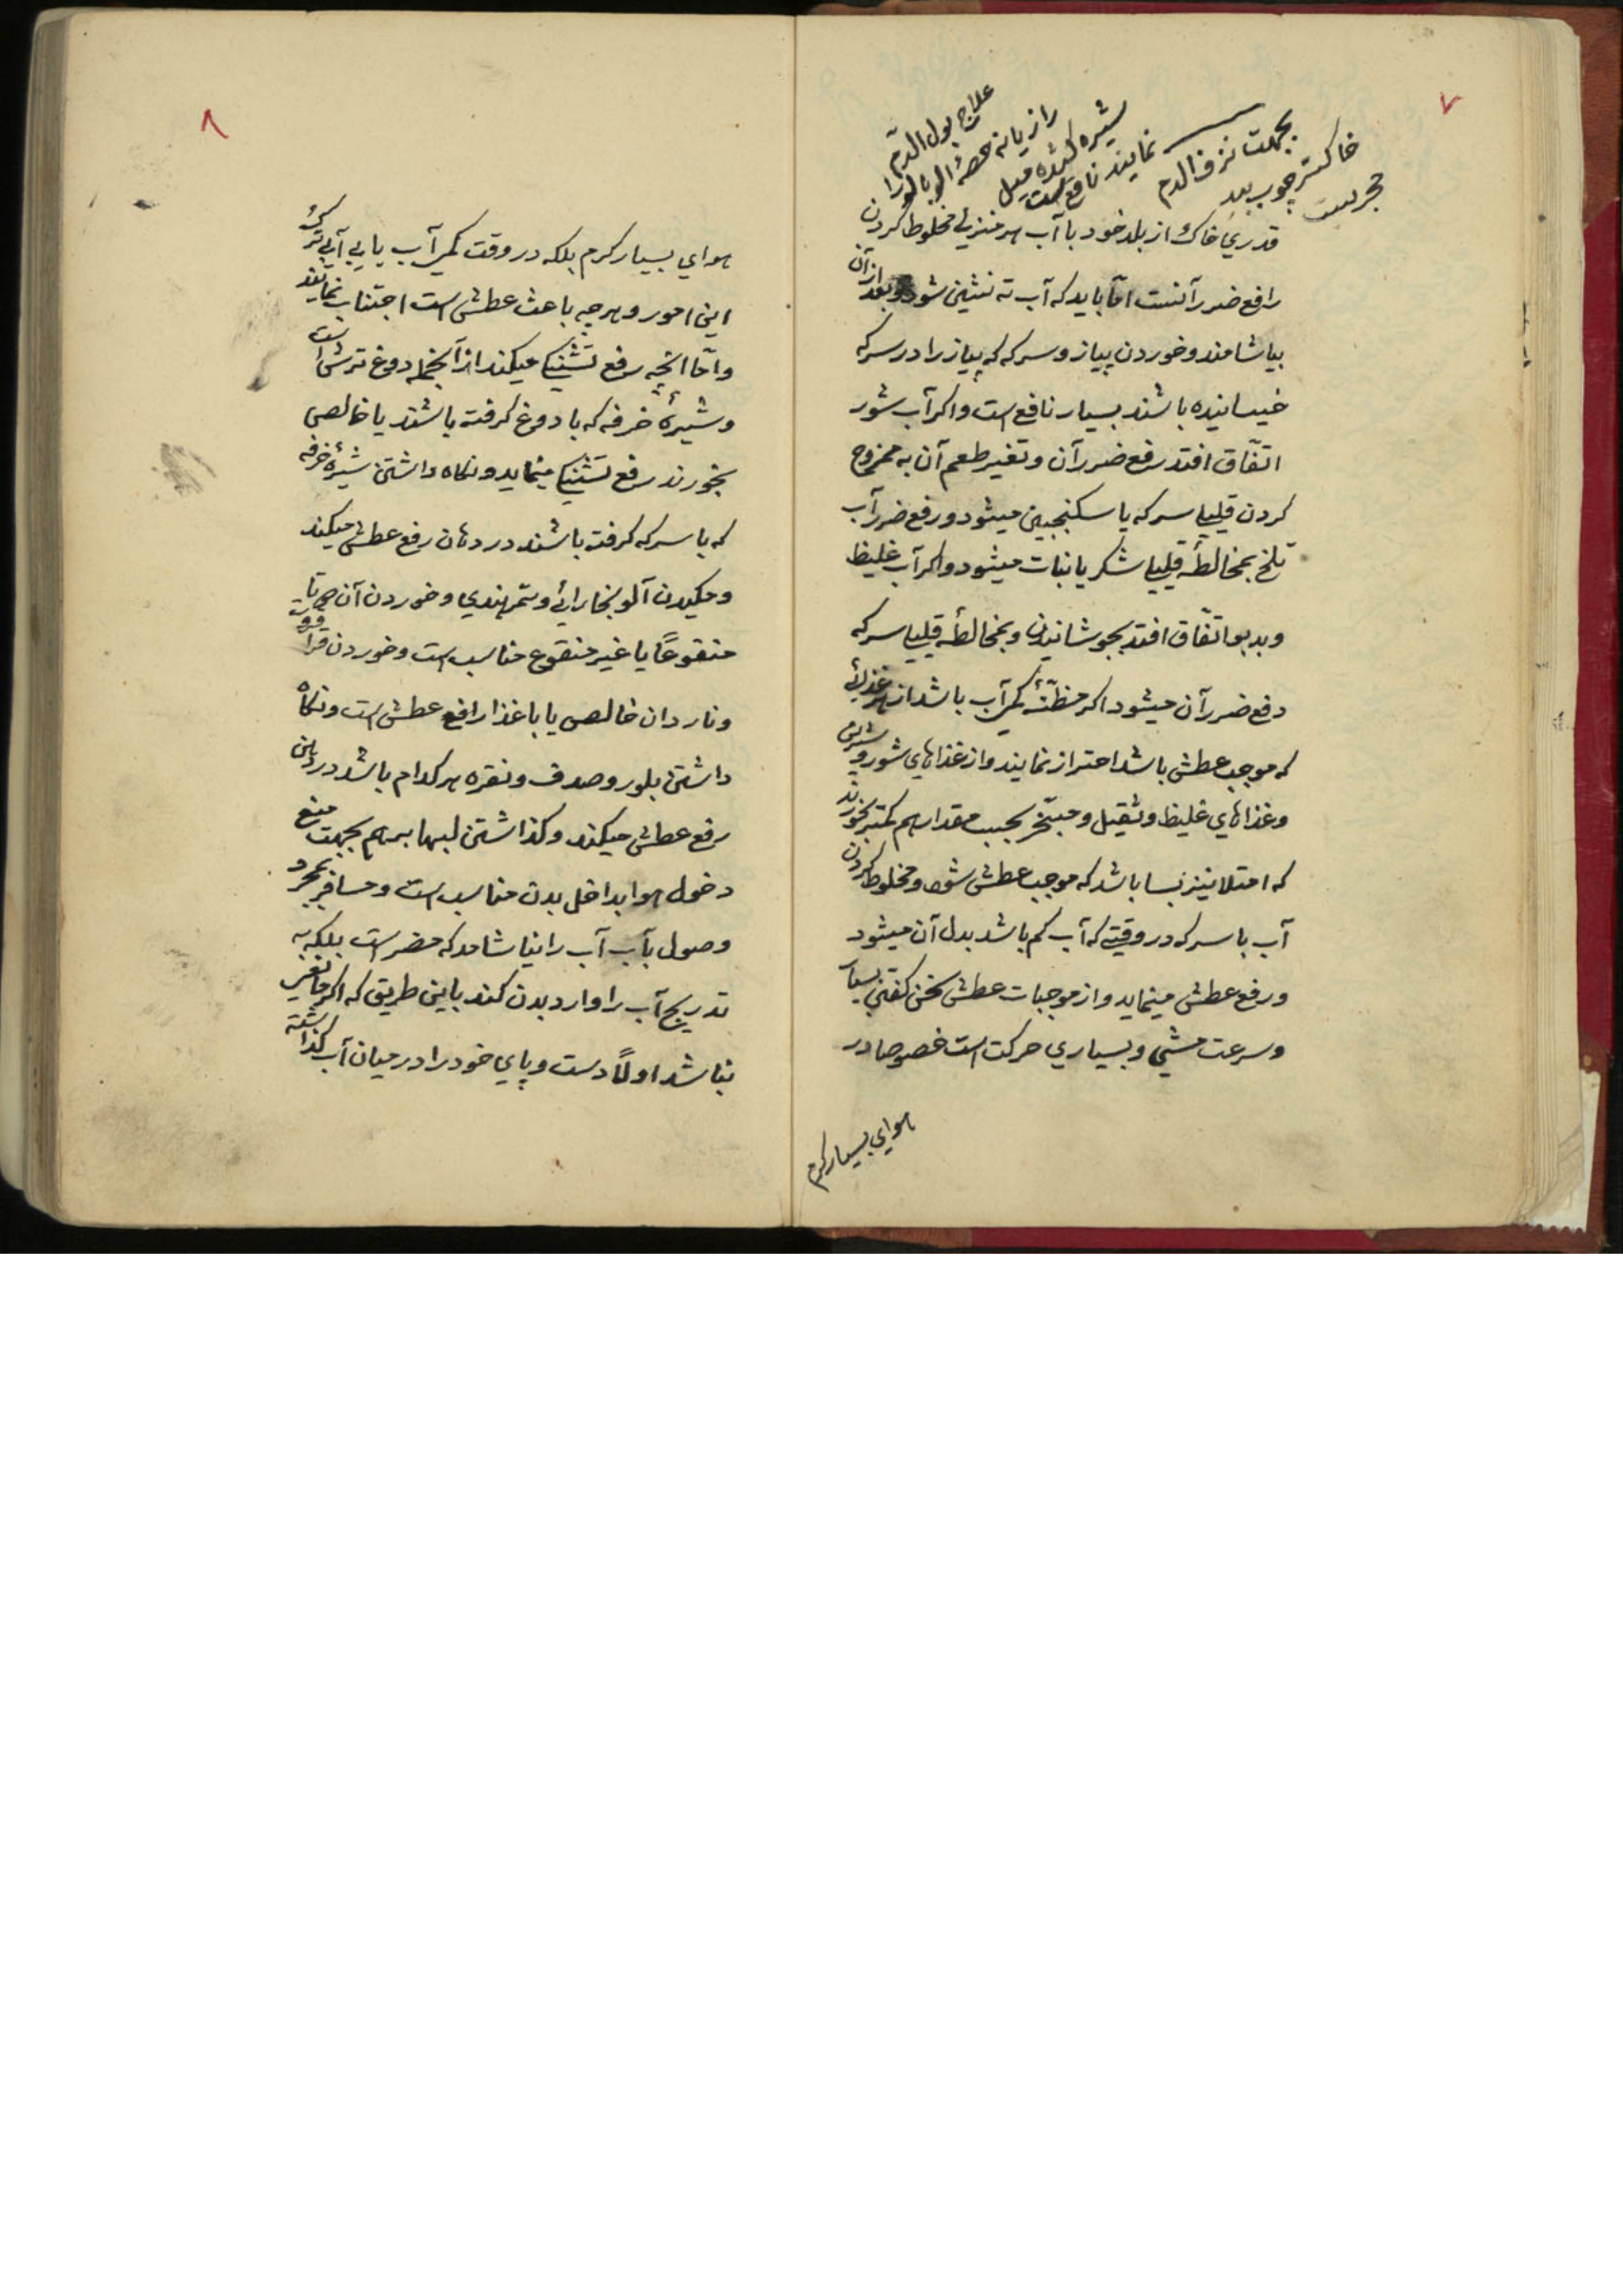 ۷
علاج بول الدم
رازیانه حصی البان را
شیره کشیده میل
نمایند نافع است
بجهت نزف الدم
خاکستر چوب بید
مجربست
قدری خاک از بلد خود با آب هر منزلی مخلوط کردن
رافع ضرر آنست امّا باید که آب ته نشین شود و بعد از آن
بیاشامند و خوردن پیاز و سرکه که پیاز را در سرکه
خیسانیده باشند بسیار نافع است و اکر آب شور
اتّفاق افتد رفع ضرر آن و تغیر طعم آن به ممزوج
کردن قلیلی سرکه یا سکنجبین میشود و رفع ضرر آب
تلخ بمخالطهٔ قلیلی شکر یا نبات میشود و اکر آب غلیظ
و بدبو اتّفاق افتد بجوشانیدن و بمخالطهٔ قلیلی سرکه
دفع ضرر آن میشود اکر مظنّهٔ کم آب باشد از هر غذائی
که موجب عطش باشد احتراز نمایند و از غذاهای شور و شیرین
و غذاهای غلیظ و ثقیل و مبخّر بحسب مقدار هم کمتر بخورند
که امتلا نیز بسا باشد که موجب عطش شود و مخلوط کردن
آب با سرکه در وقتی که آب کم باشد بدل آن میشود
و رفع عطش مینماید و از موجبات عطش سخن کفتن بسیار
و سرعت مشی و بسیاری حرکت است خصوصا در
هوای بسیار کرم
۸
هوای بسیار کرم بلکه در وقت کم آب یا بی آبی ترک
این امور و هرچه باعث عطش است اجتناب نمایند
و امّا انچه رفع تشنکی میکند از آنجمله دوغ ترش است
و شیرهٔ خرفه که با دوغ کرفته باشند یا خالص
بخورند رفع تشنکی مینماید و نکاه داشتن شیرهٔ خرفه
که با سرکه کرفته باشند در دهان رفع عطش میکند
و مکیدن آلو بخارائی و تمر هندی و خوردن آن
منقوعًا یا غیر منقوع مناسب است و خوردن قراقروت
و ناردان خالص یا با غذا رافع عطش است و نکاه
داشتن بلور و صدف و نقره هر کدام باشد در دهن
رفع عطش میکند و کذاشتن لبها بر هم بجهت منع
دخول هوا بداخل بدن مناسب است و مسافر بمجرد
وصول بآب آب را نیاشامد که مضر است بلکه به
تدریج آب را وارد بدن کند باین طریق که اکر مانعی
نباشد اولًا دست و پای خود را در میان آب کذاشته